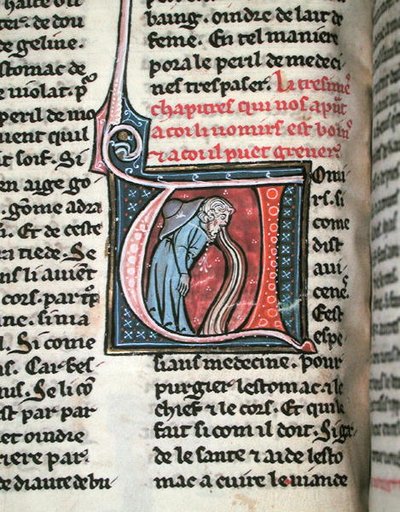 ter. de dou
de geline.
stomac de
e violat.
peril de mo
uent quil
t soif. Si
en aige go
gōme adra
. Et de ceste
a tiede. Se
ns li auient
cors. par
une. si
l. Si come
s. Car bes
us. Se li cō
st par par
et oindre
riere par.
de diaute de bu
baing. oindre de lait de
feme. En tel maniere
pora le peril de medeci
nes trespaser. Li tresime
chapitres qui uos
a coi li uomirs est boīs
⁊ a coi il puet greuer.
Uomi
rs. si
come
dist
aui
cene.
Eest
espe
sians medecine. pour
purgier lestomac. ⁊ le
chief ⁊ le cors. Et qui le
fait si com il doit. Si gar
de le sante ⁊ aide lesto
mac a cuire le uiande